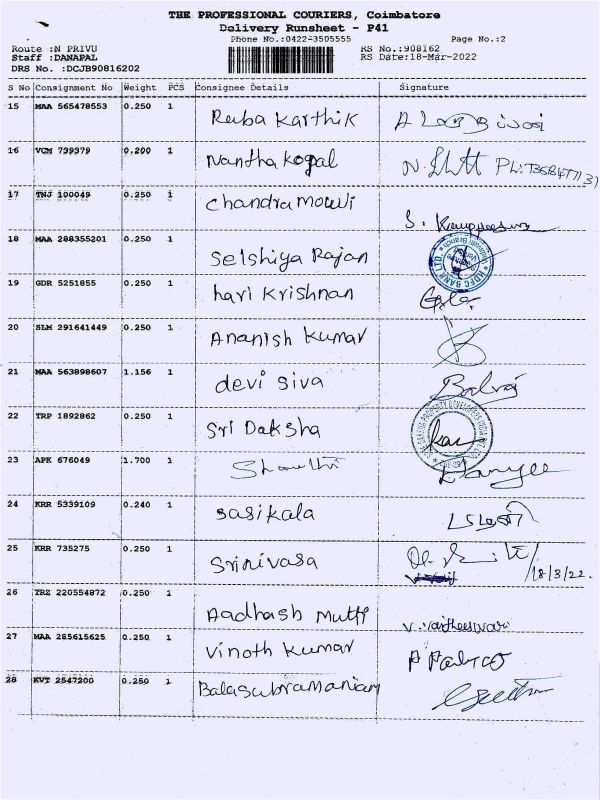 THE PROFESSIONAL COURIERS, Coimbatore
Delivery Runsheet - P41
Phone No.:0422-3505555 Page No.:2
Route :N PRIVU RS No.:908162
Staff :DANAPAL RS Date:18-Mar-2022
DRS No. :DCJB90816202
S No Consignment No Weight PCS Consignee Details Signature
15 MAA 565478553 0.250 1 Reuba Karthik
16 VCM 739379 0.200 1 Nantha kopal
17 TNJ 100049 0.250 1 Chandra mouli
18 MAA 288355201 0.250 1 Selshiya Rajan HDFC BANK LTD.
19 GDR 5251855 0.250 1 hari Krishnan
20 SLM 291641449 0.250 1 Ananish Kumar
21 MAA 563898607 1.156 1 devi siva Balraj
22 TRP 1892862 0.250 1 Sri Daksha
23 APK 676049 1.700 1
24 KRR 5339109 0.240 1 Sasikala
25 KRR 735275 0.250 1 Srinivasa 18/3/22.
26 TRZ 220554872 0.250 1 Aadhash
27 MAA 285615625 0.250 1 Vinoth Kumar
28 KVT 2547200 0.250 1 Balasubramaniam